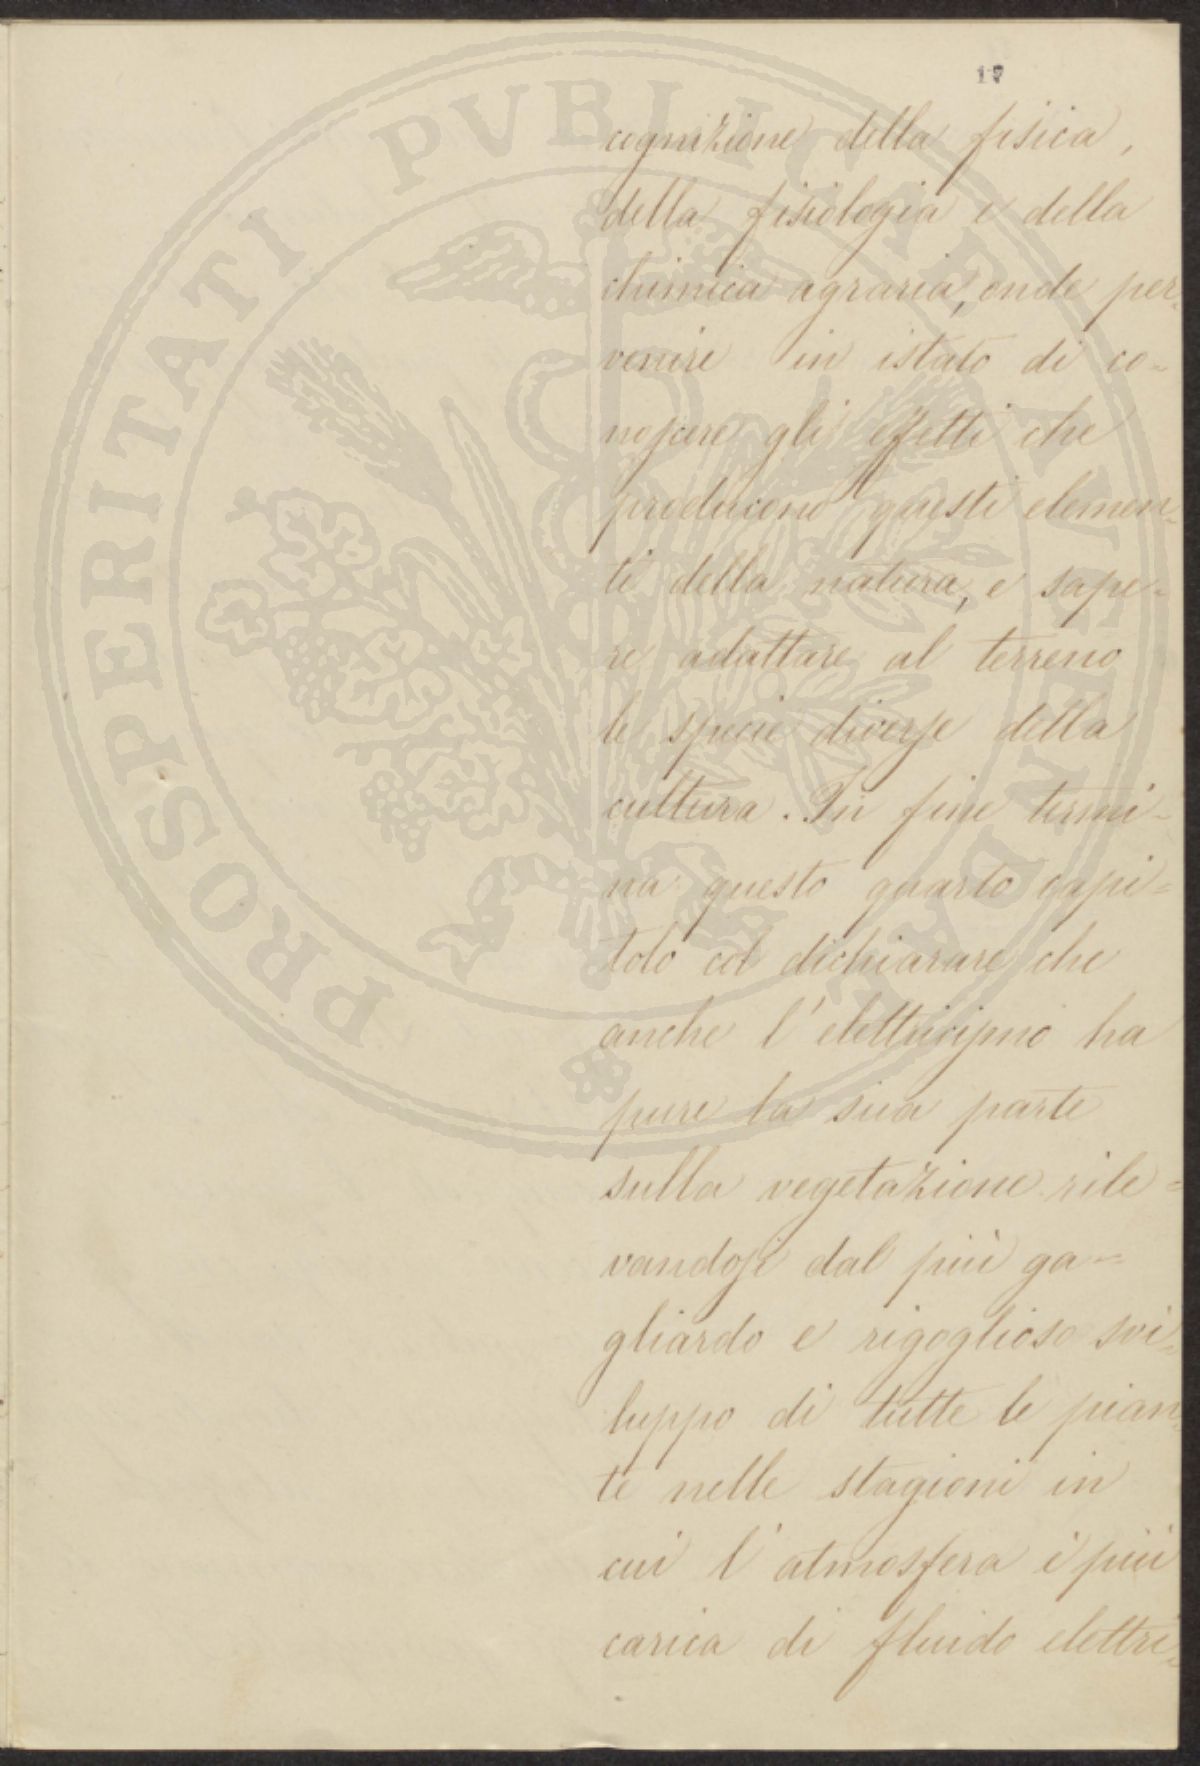 17
cognizione della fisica,
della fisiologia e della
chimica agraria, onde per=
venire in istato di co=
noscere gli effetti che
producono questi elemen=
ti della natura, e sape=
re adattare al terreno
le specie diverse della
cultura. In fine termi=
na questo quarto capi=
tolo col dichiarare che
anche l'elettricismo ha
pure la sua parte
sulla vegetazione rile=
vandosi dal più ga=
gliardo e rigoglioso svi=
luppo di tutte le pian=
te nelle stagioni in
cui l'atmosfera è più
carica di fluido elettri=
PROSPERITATI PVBLICAE AVGENDAE